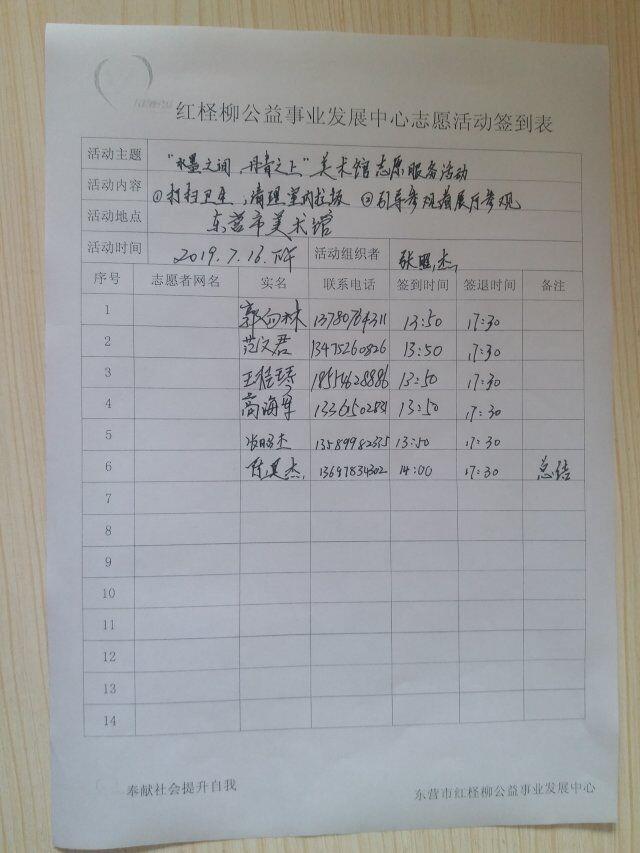 红柽柳公益事业发展中心志愿活动签到表
活动主题 "水墨之间,丹青之上"美术馆志愿服务活动
活动内容 ①打扫卫生,清理室内垃圾 ②引导参观者展厅参观
活动地点 东营市美术馆
活动时间 2019.7.16.下午 活动组织者 张照杰
序号 志愿者网名 实名 联系电话 签到时间 签退时间 备注
1 郭向林 13780764311 13:50 17:30
2 范汉君 13475260826 13:50 17:30
3 18554628886 13:50 17:30
4 高海军 13:50 17:30
5 张照杰 13589982375 13:50 17:30
6 陈其杰 13697834302 14:00 17:30 总结
7
8
9
10
11
12
13
14
奉献社会提升自我 东营市红柽柳公益事业发展中心